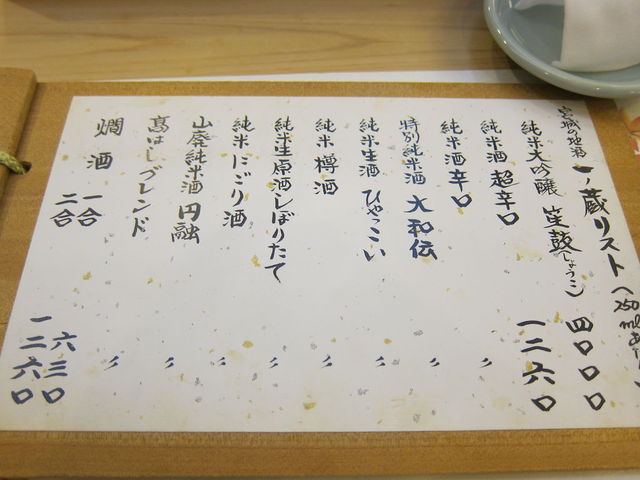 宮城の地酒 一ノ蔵リスト(250ml
純米大吟醸 笙鼓(しょうこ) 四〇〇〇
純米酒 超辛口 一二六〇
純米酒 辛口 〃
特別純米酒 大和伝 〃
純米生酒 ひゃっこい 〃
純米樽酒 〃
純米生原酒しぼりたて 〃
純米にごり酒 〃
山廃純米酒 円融 〃
髙はしブレンド 〃
燗酒 一合 六三〇
二合 一二六〇